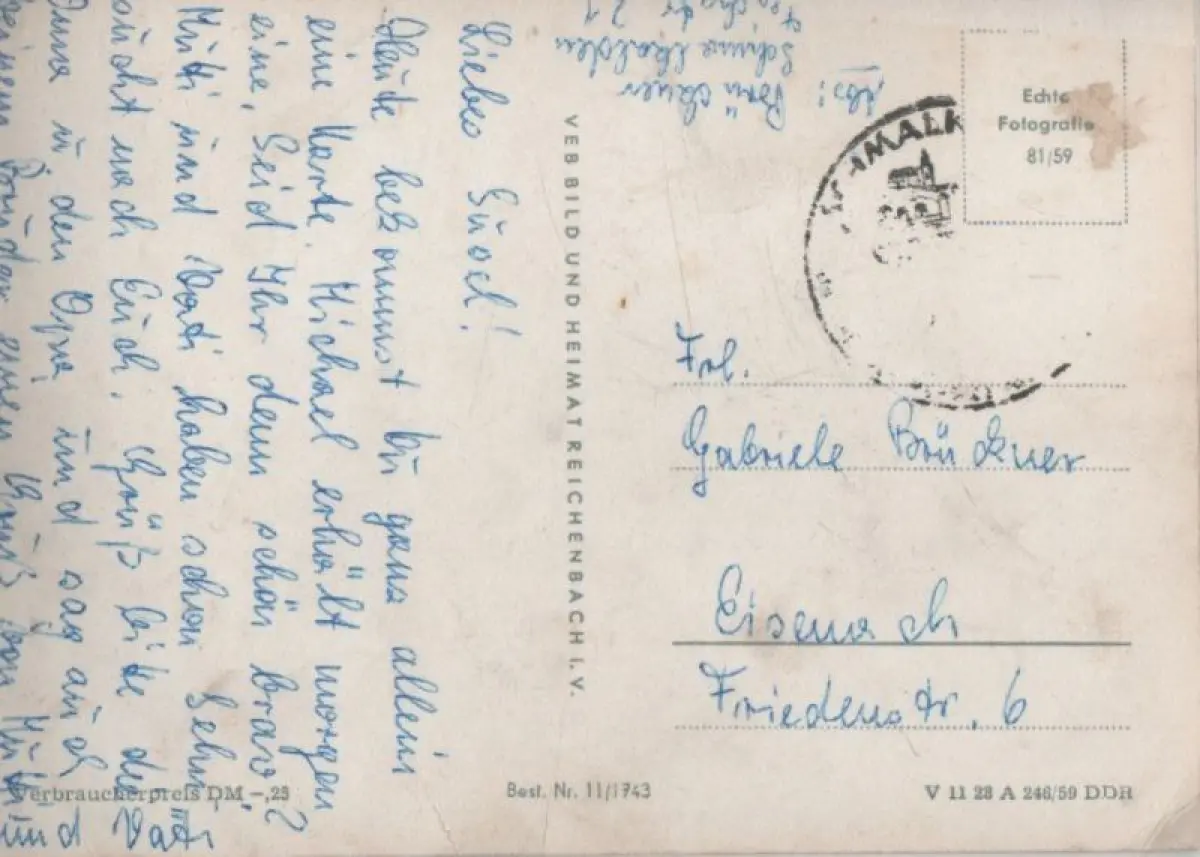 Liebes
Heute bekommst Du ganz allein
eine Karte. Michael erhält morgen
eine. Seid Ihr denn schön brav?
Mutti und Vati haben schon Sehn-
sucht nach Euch. Grüß bitte die
Oma u. den Opa und sag auch
Deinem Bruder einen Gruß von Mutti
und Vati
Abs:
Brückner
Schmalkalden
21
VEB BILD UND HEIMAT REICHENBACH I. V.
Echte
Fotografie
81/59
Frl.
Gabriele Brückner
Eisenach
Friedenstr. 6
Verbraucherpreis DM -,25
Best. Nr. 11/1743
V 11 28 A 246/59 DDR